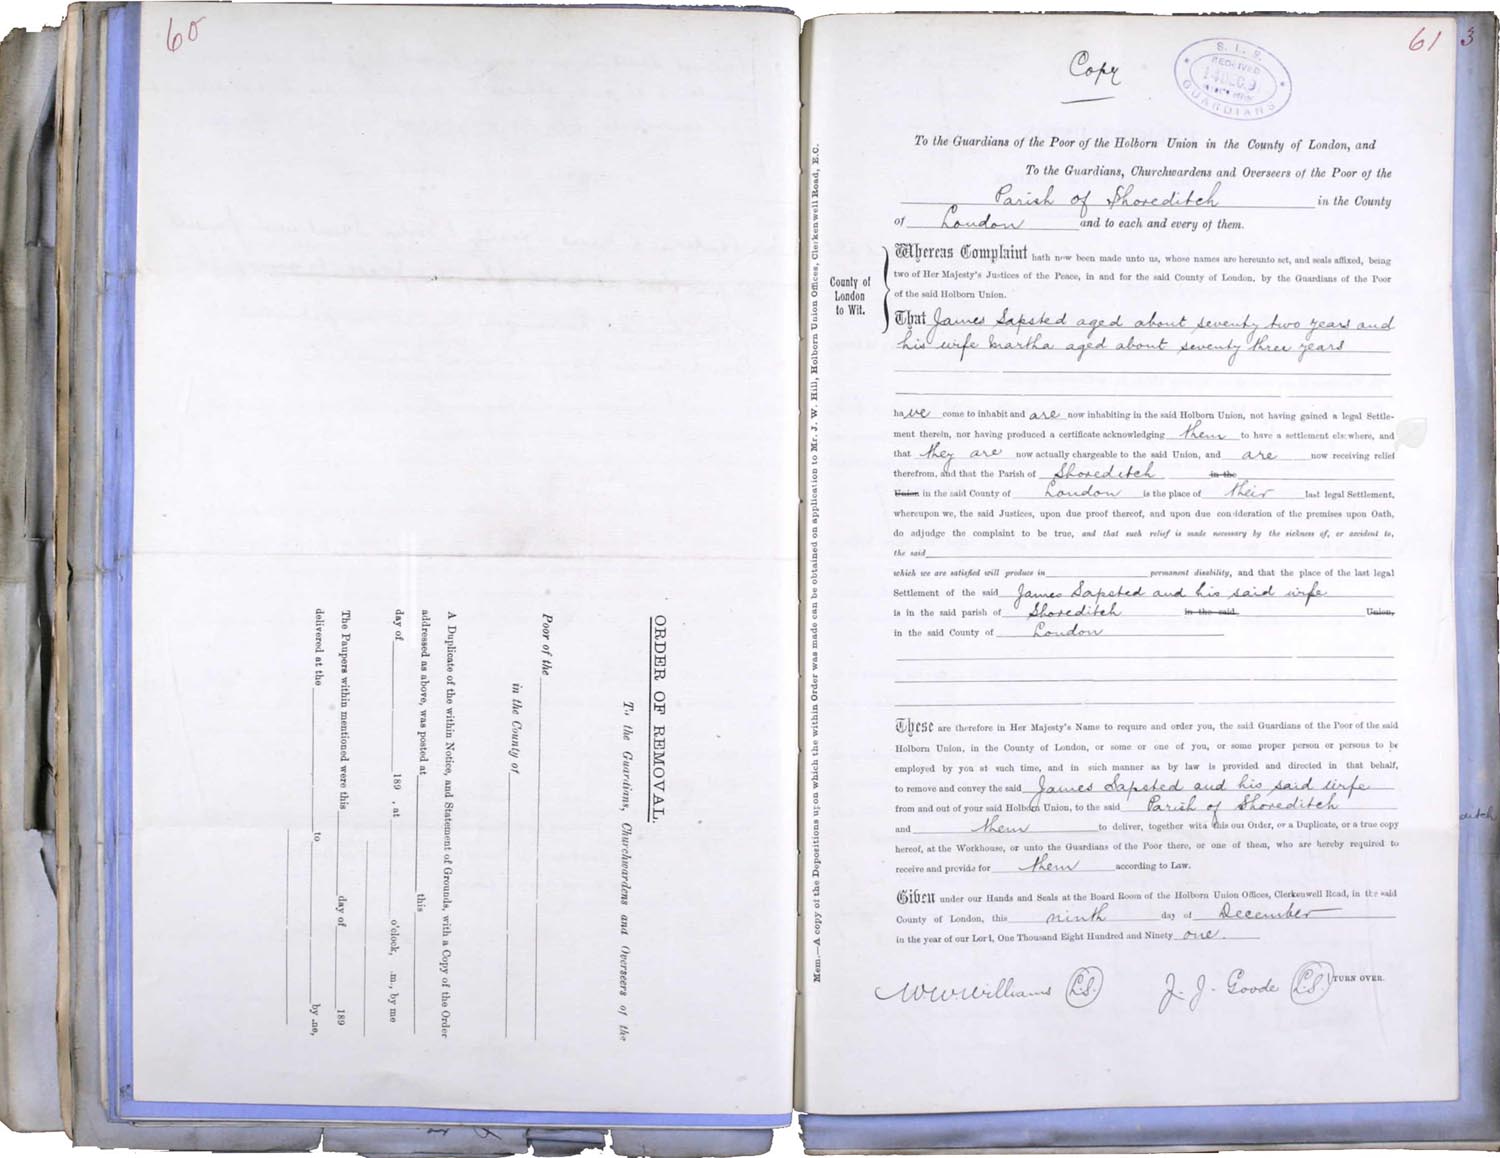 60
ORDER OF REMOVAL.
To the Guardians, Churchwardens and Overseers of the
Poor of the
in the County of
A Duplicate of the within Notice, and Statement of Grounds, with a Copy of the Order
addressed as above, was posted at this
day of 189 , at o'clock, .m., by me
The Paupers within mentioned were this day of 189
delivered at the to by me,
61
3
Copy
S. L. S.
RECEIVED
14 DEC 91
GUARDIANS
To the Guardians of the Poor of the Holborn Union in the County of London, and
To the Guardians, Churchwardens and Overseers of the Poor of the
Parish of Shoreditch in the County
of London and to each and every of them.
County of
London
to Wit.
Whereas Complaint hath now been made unto us, whose names are hereunto set, and seals affixed, being
two of Her Majesty's Justices of the Peace, in and for the said County of London, by the Guardians of the Poor
of the said Holborn Union.
That James Sapsted aged about seventy two years and
his wife Martha aged about seventy three years
have come to inhabit and are now inhabiting in the said Holborn Union, not having gained a legal Settle-
ment therein, nor having produced a certificate acknowledging them to have a settlement elsewhere, and
that they are now actually chargeable to the said Union, and are now receiving relief
therefrom, and that the Parish of Shoreditch in the
Union in the said County of London is the place of their last legal Settlement,
whereupon we, the said Justices, upon due proof thereof, and upon due consideration of the premises upon Oath,
do adjudge the complaint to be true, and that such relief is made necessary by the sickness of, or accident to,
the said
which we are satisfied will produce in permanent disability, and that the place of the last legal
Settlement of the said James Sapsted and his said wife
is in the said parish of Shoreditch in the said Union,
in the said County of London
These are therefore in Her Majesty's Name to require and order you, the said Guardians of the Poor of the said
Holborn Union, in the County of London, or some or one of you, or some proper person or persons to be
employed by you at such time, and in such manner as by law is provided and directed in that behalf,
to remove and convey the said James Sapsted and his said wife
from and out of your said Holborn Union, to the said Parish of Shoreditch
and them to deliver, together with this our Order, or a Duplicate, or a true copy
hereof, at the Workhouse, or unto the Guardians of the Poor there, or one of them, who are hereby required to
receive and provide for them according to Law.
Given under our Hands and Seals at the Board Room of the Holborn Union Offices, Clerkenwell Road, in the said
County of London, this ninth day of December
in the year of our Lord, One Thousand Eight Hundred and Ninety one.
W W Williams L.S. J. J. Goode L.S. TURN OVER.
Mem.—A copy of the Depositions upon which the within Order was made can be obtained on application to Mr. J. W. Hill, Holborn Union Offices, Clerkenwell Road, E.C.
ditch